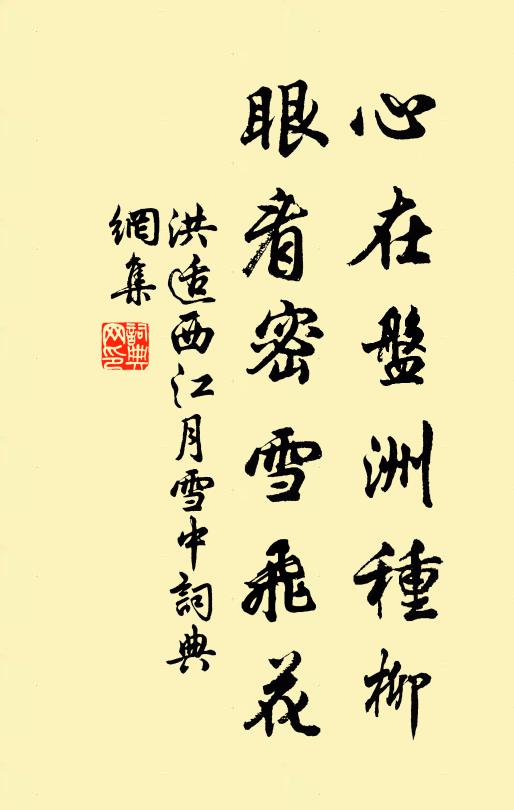 心在盤洲種柳
眼看密雪飛花
洪适西江月雪中詞典
網集
詞典网印